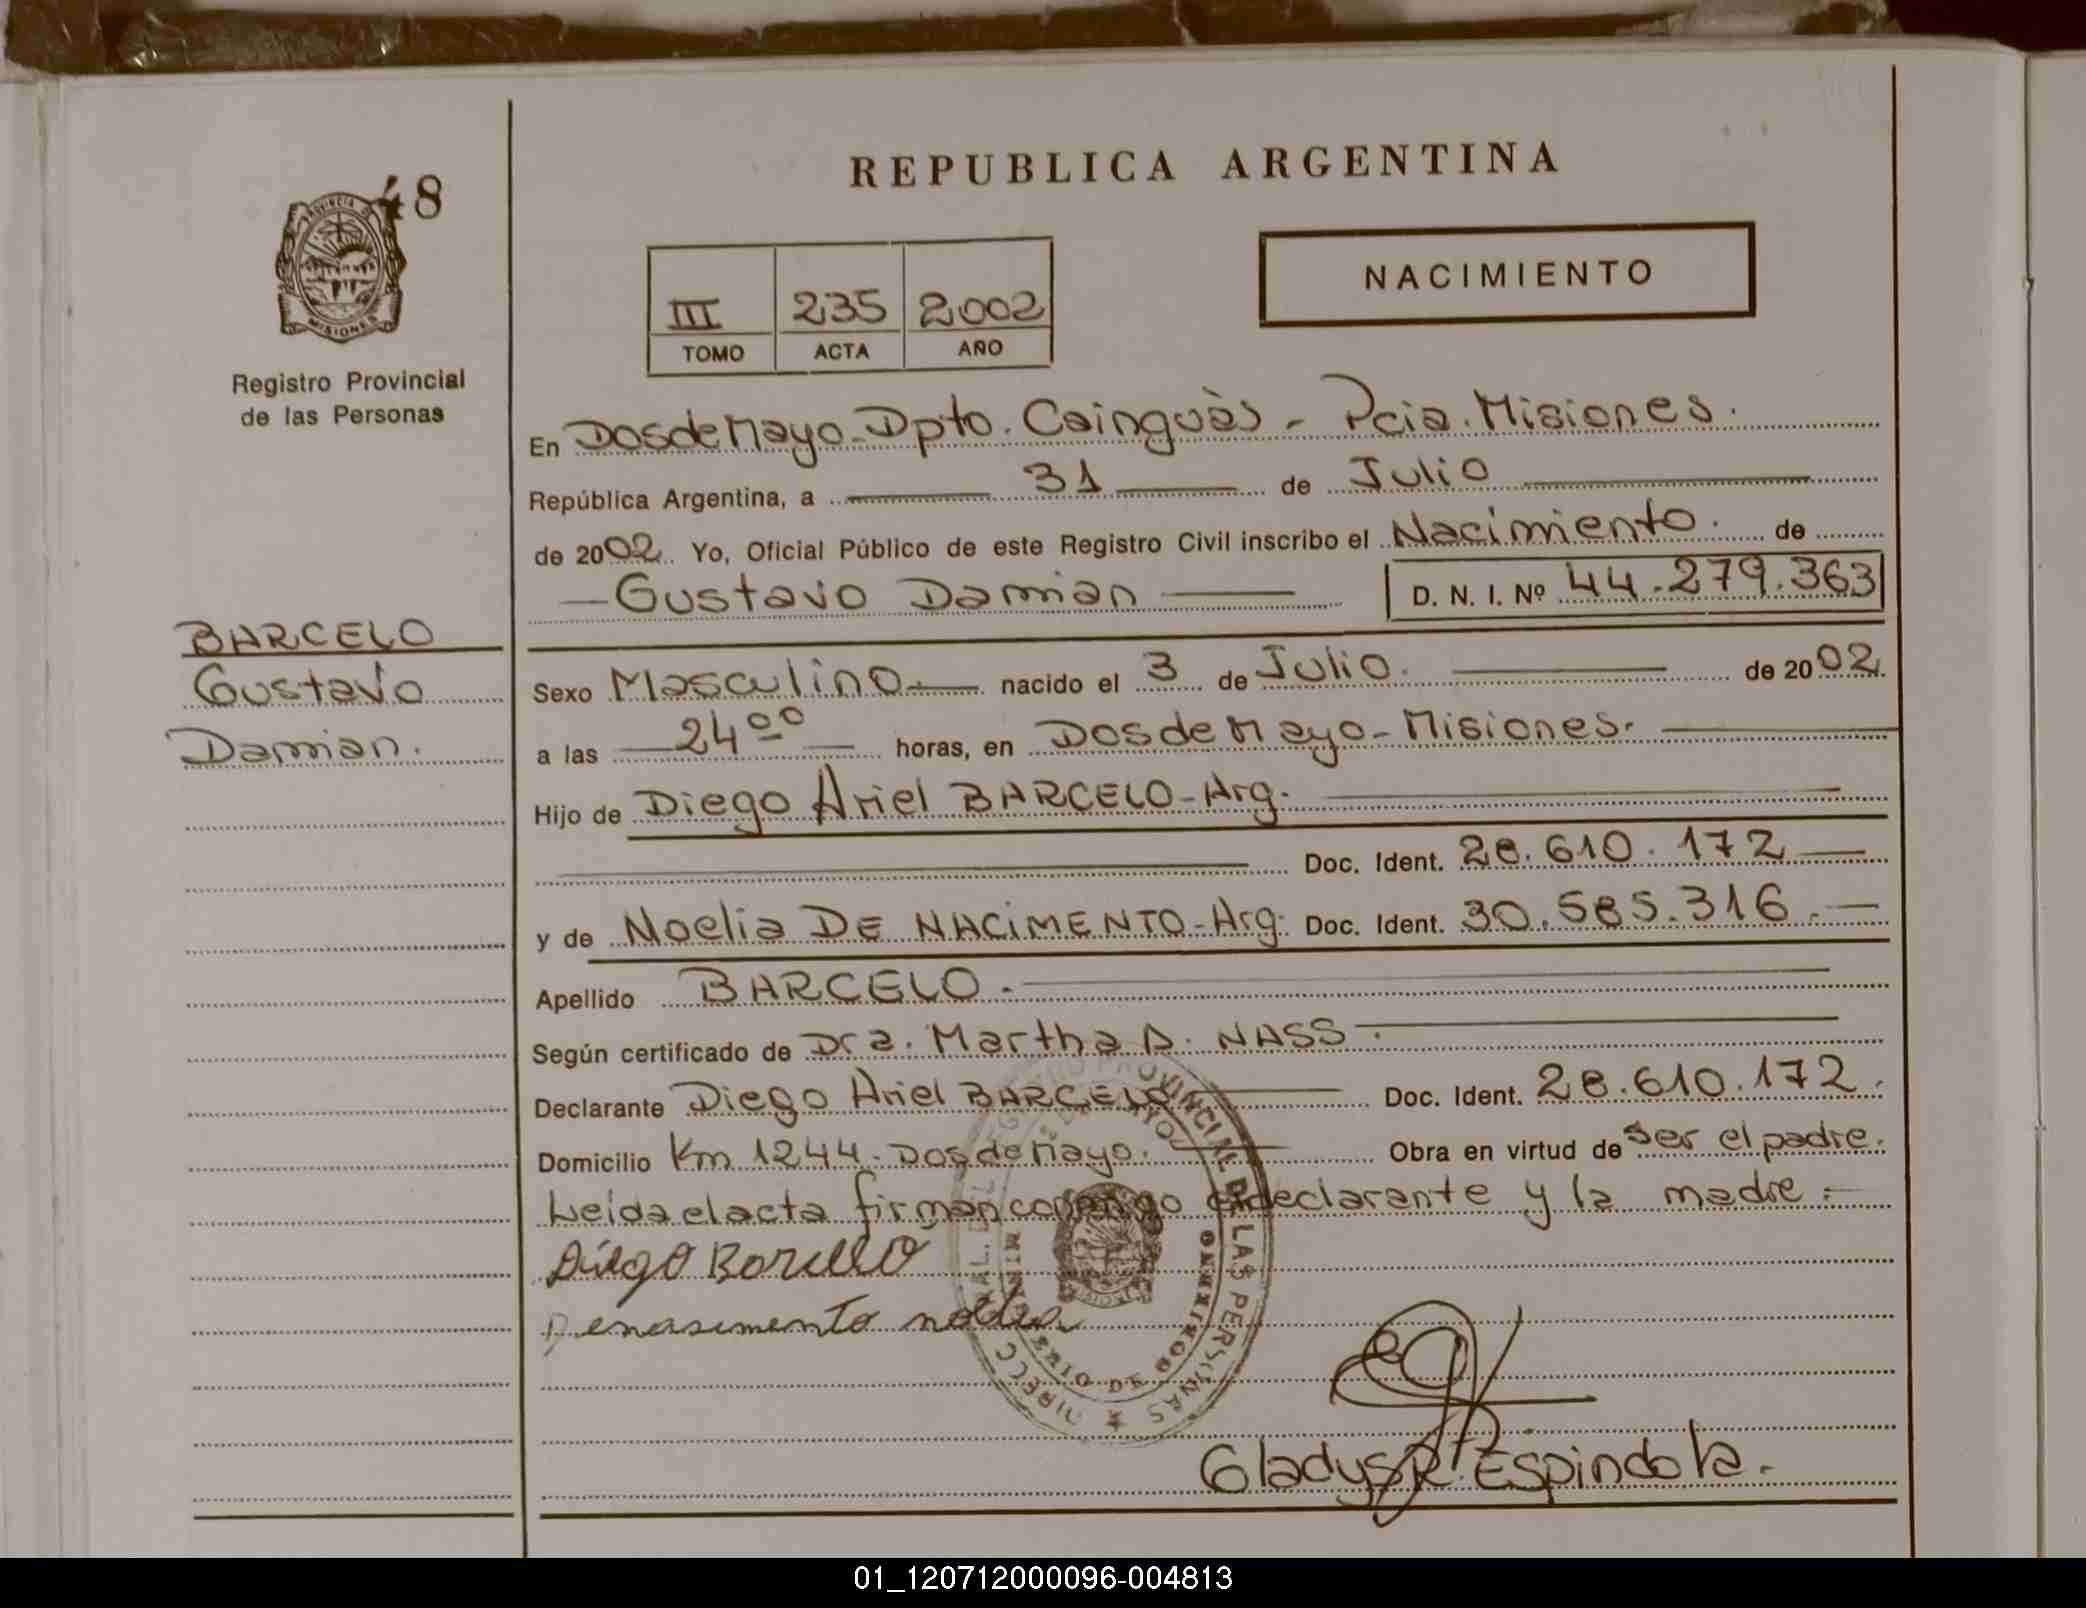 48
PROVINCIA DE
MISIONES
Registro Provincial
de las Personas
REPUBLICA ARGENTINA
NACIMIENTO
III 235 2002
TOMO ACTA AÑO
En Dos de Mayo - Dpto. Cainguàs - Pcia. Misiones.
República Argentina, a 31 de Julio
de 2002. Yo, Oficial Público de este Registro Civil inscribo el Nacimiento. de
Gustavo Damian D. N. I. Nº 44.279.363
BARCELO
Gustavo
Damian.
Sexo Masculino nacido el 3 de Julio. de 2002.
a las 24 00 horas, en Dos de Mayo - Misiones.
Hijo de Diego Ariel BARCELO - Arg.
Doc. Ident. 28.610.172
y de Noelia DE NACIMENTO - Arg. Doc. Ident. 30.585.316.
Apellido BARCELO.
Según certificado de Dra. Martha A. NASS.
Declarante Diego Ariel BARCELO Doc. Ident. 28.610.172.
Domicilio Km 1244 - Dos de Mayo. Obra en virtud de ser el padre.
Leida el acta firman conmigo el declarante y la madre.
Diego Barcelo
Denasimento
REGISTRO PROVINCIAL DE LAS PERSONAS
Gladys R. Espindola.
01_120712000096-004813